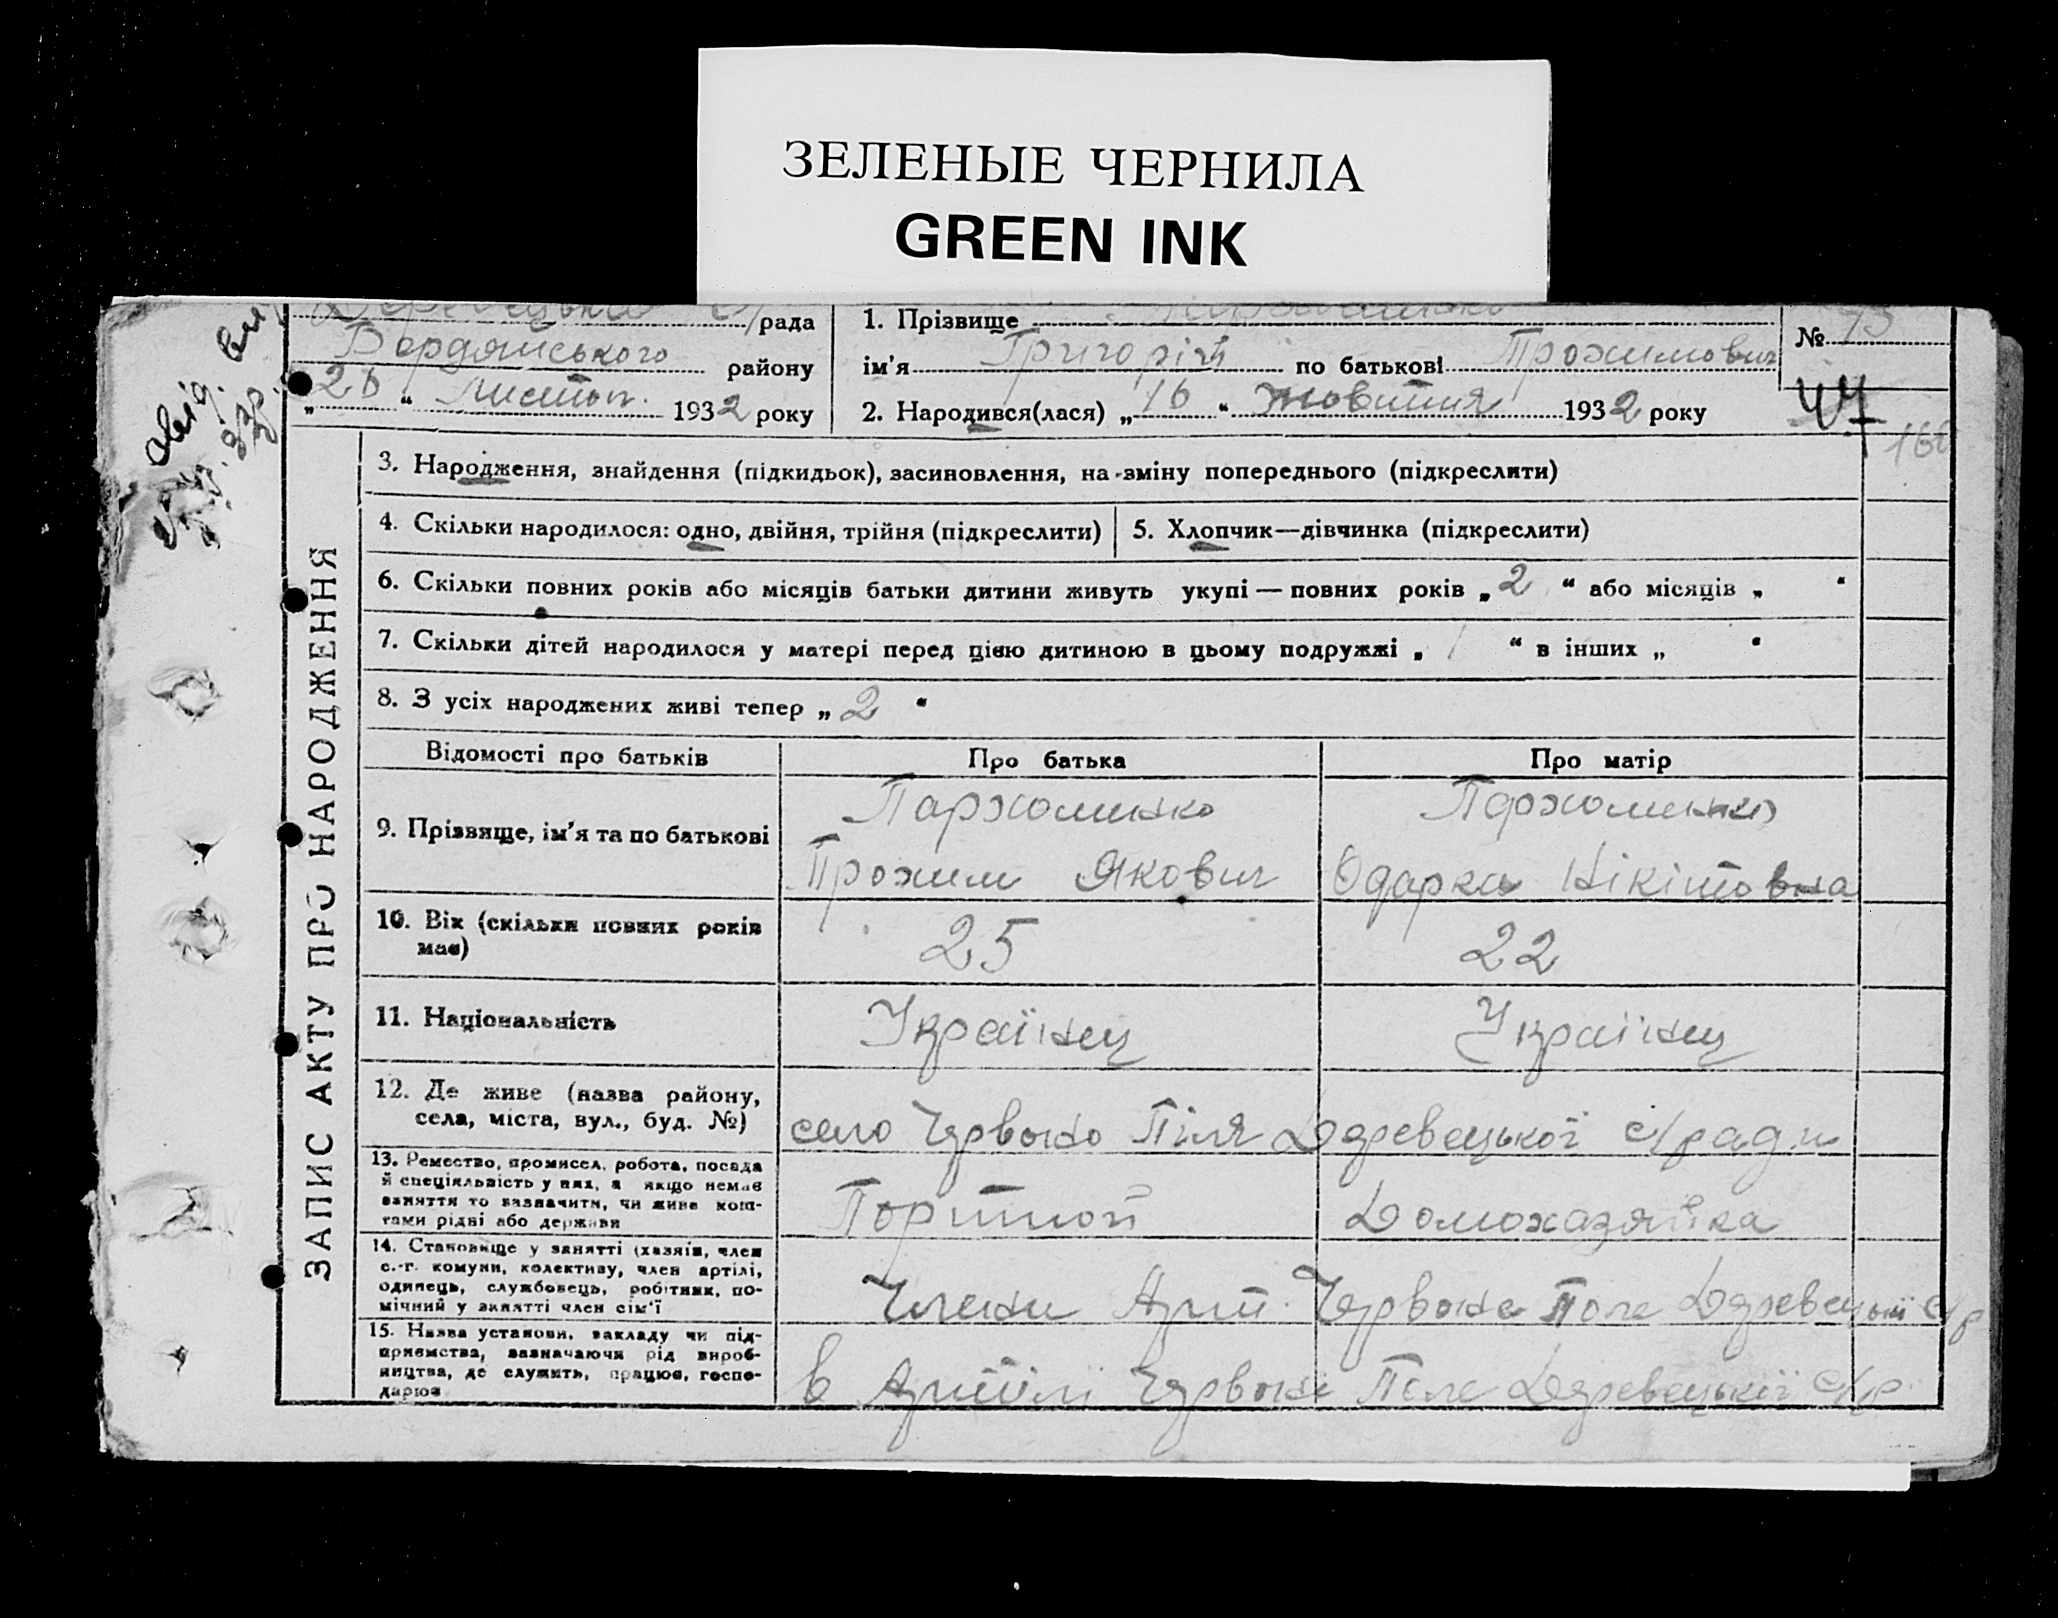 ЗЕЛЕНЫЕ ЧЕРНИЛА
GREEN INK
/рада
Бердянського району
„26“ Листоп. 1932 року
1. Прізвище
ім'я Григорій по батькові Трохимович
2. Народився(лася) „16“ Жовтня 1932 року
№
47
ЗАПИС АКТУ ПРО НАРОДЖЕННЯ
3. Народження, знайдення (підкидьок), засиновлення, на зміну попереднього (підкреслити)
4. Скільки народилося: одно, двійня, трійня (підкреслити)
5. Хлопчик—дівчинка (підкреслити)
6. Скільки повних років або місяців батьки дитини живуть укупі — повних років „2“ або місяців „ “
7. Скільки дітей народилося у матері перед цією дитиною в цьому подружжі „1“ в інших „ “
8. З усіх народжених живі тепер „2“
Відомості про батьків Про батька Про матір
9. Прізвище, ім'я та по батькові
Пархоминко Пархоминко
Трохим Якович Одарка Нікітовна
10. Вік (скільки повних років має)
25 22
11. Національність
Українец Українец
12. Де живе (назва району,
села, міста, вул., буд. №)
село Червоно Піля Деревецької с/ради
13. Ремество, промисел, робота, посада
й спеціяльність у них, а якщо немає
заняття то зазначити, чи живе кош-
тами рідні або держави
Портной Домохазяйка
14. Становище у занятті (хазяїн, член
с.-г. комуни, колективу, член артілі,
одинець, службовець, робітник, по-
мічний у занятті член сім'ї
Члени Арт. Червоне поле Деревецької с/р
15. Назва установи, закладу чи під-
приємства, зазначаючи рід вироб-
ництва, де служить, працює, госпо-
дарює
в Артілі Червоне Поле Деревецької с/р